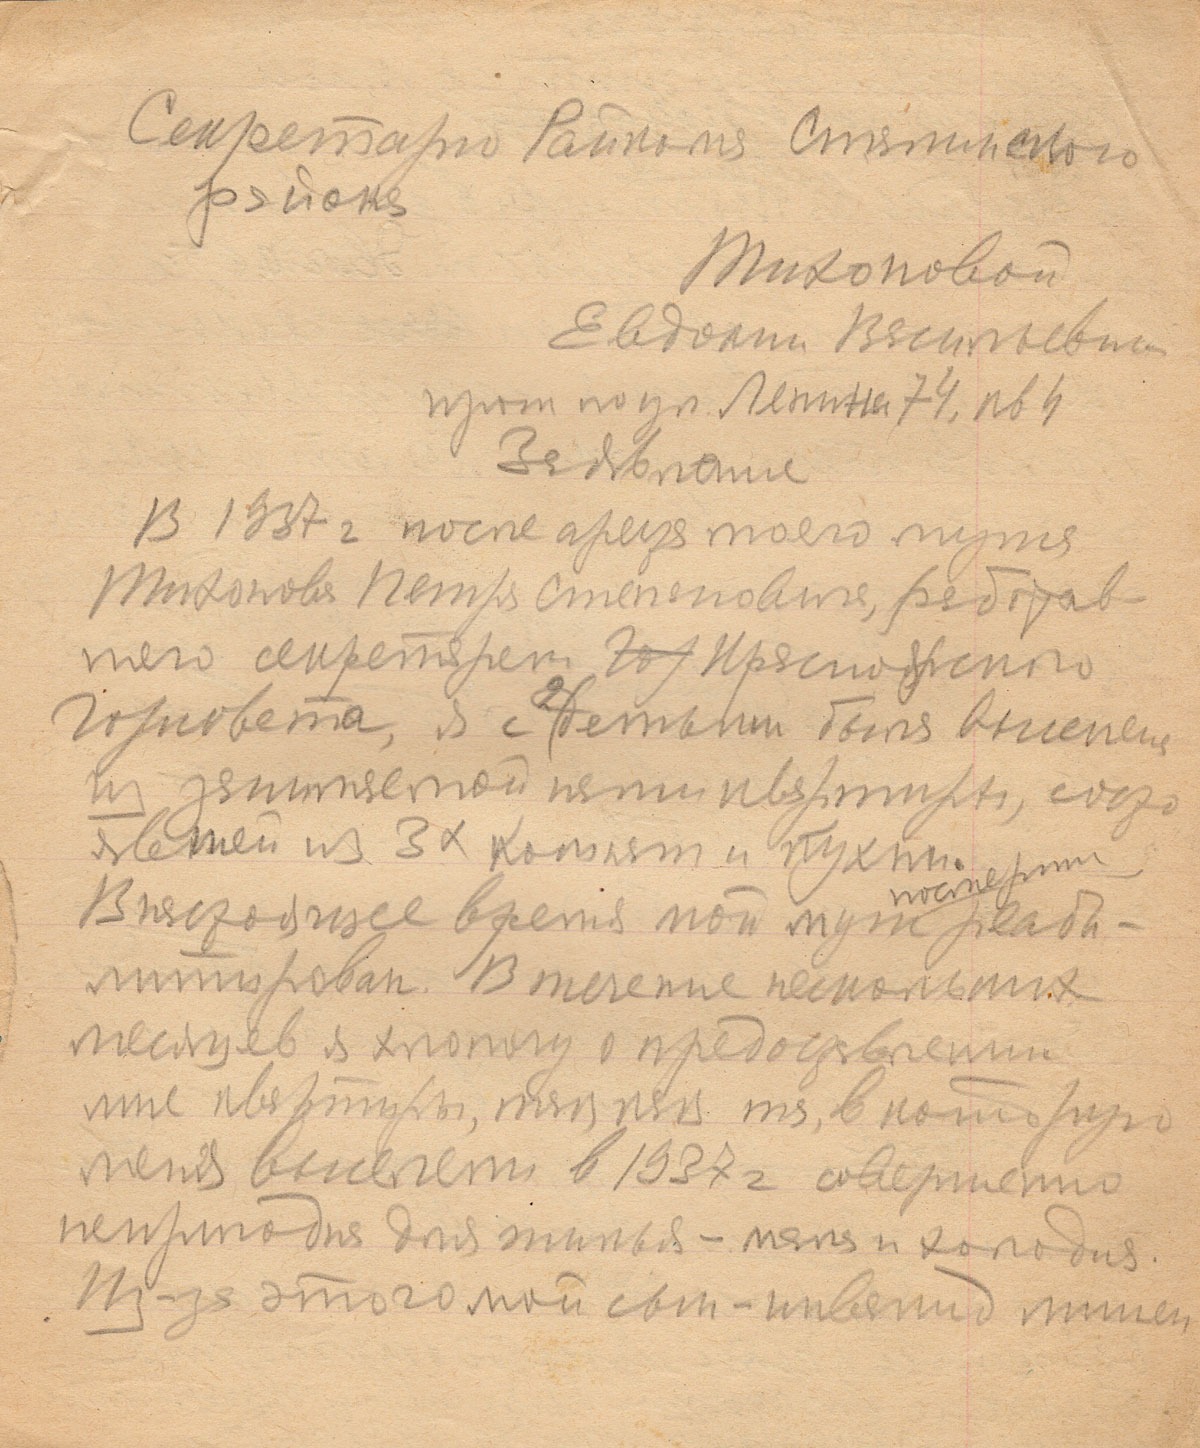 Секретарю Райкома Сталинского
района
Тихоновой
Евдокии Васильевны
прож по ул. Ленина 74, кв 4
Заявление
В 1937 г после ареста моего мужа
Тихонова Петра Степановича, работав-
шего секретарем Гор Красноярского
Горсовета, я с 2 детьми была выселена
из занимаемой нами квартиры, состо
явшей из 3х комнат и кухни.
В настоящее время мой муж посмертно реаби-
литирован. В течение нескольких
месяцев я хлопочу о предоставлении
мне квартиры, так как та, в которую
меня выселели в 1937 г совершенно
непригодна для жилья – мала и холодна.
Из-за этого мой сын – инвалид лишен